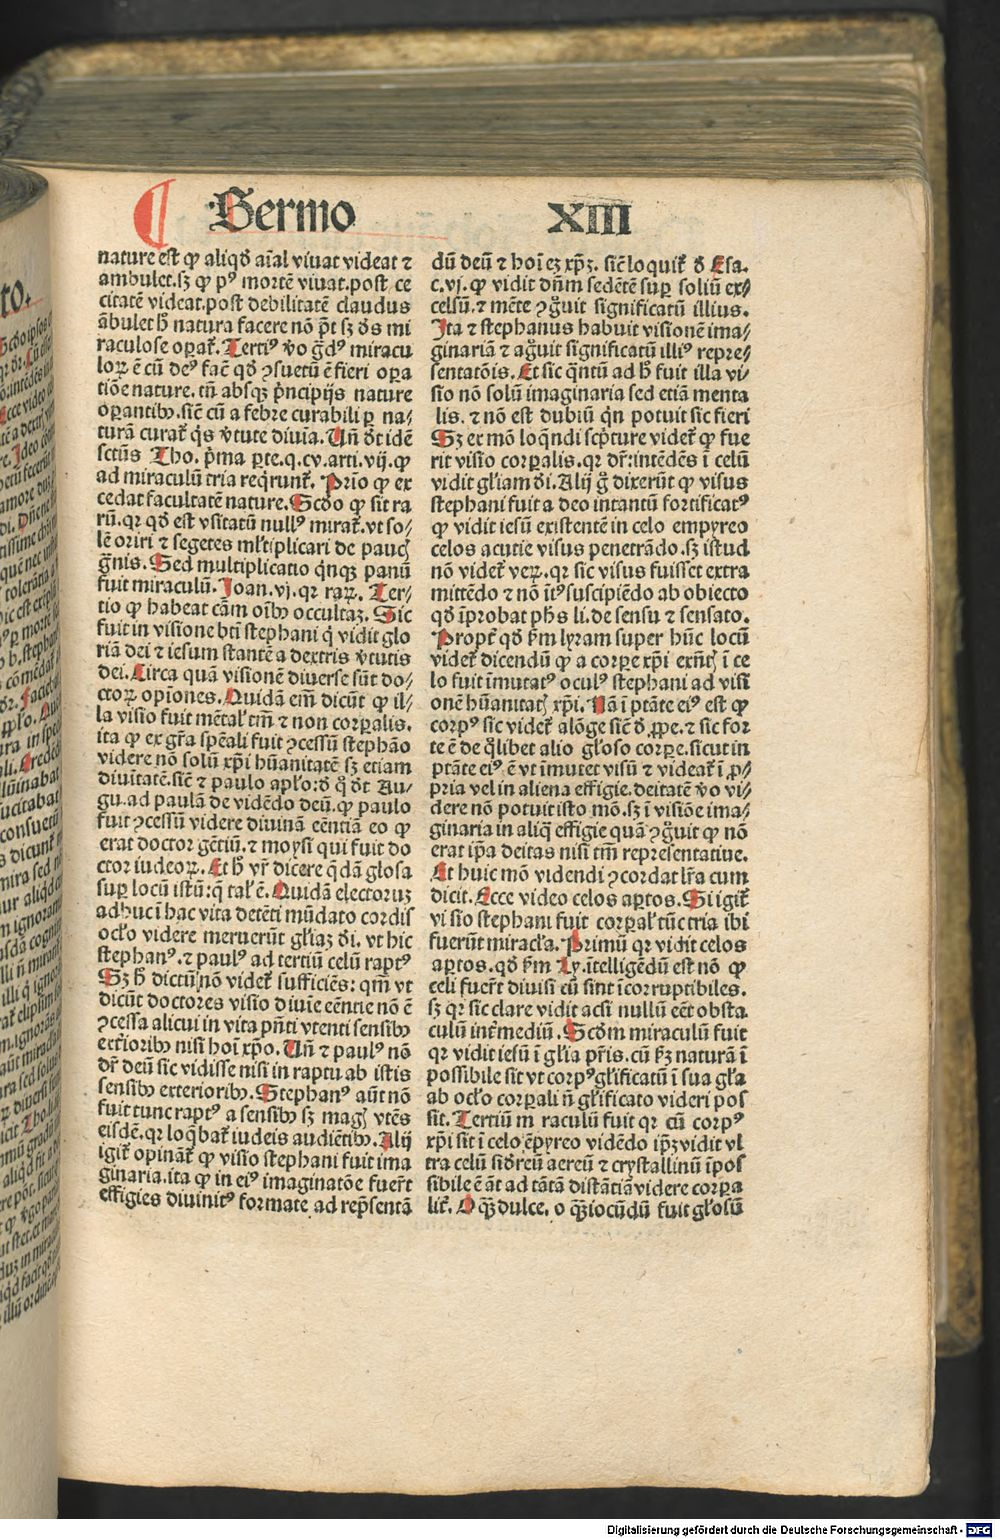 Sermo XIII
nature est ꝙ aliqd̕ aīal viuat videat ⁊
ambulet.sꝫ ꝙ pꝰ mortē viuat.post ce
citatē videat.post debilitatē claudus
ābulet h̄ natura facere nō pt̄ sꝫ d̕s mi
raculose oꝑat᷑. Tertiꝰ v̕o gͣdꝰ miracu
loꝝ ē cū deꝰ facē qd̕ ꝯsuetū ē fieri oꝑa
tiōe nature. tn̄ absqꝫ pͥncipijs nature
oꝑantibꝰ.sic̄ cū a febre curabili ꝑ na⸗
turā curat᷑ qͥs v̕tute diuīa. Un̄ d̕t idē
sctūs Tho. pͥma ꝑte.q.cv.arti.vij.ꝙ
ad miraculū tria reqͥrunt᷑. Prīo ꝙ ex
cedat facultatē nature. Scd̕o ꝙ sit ra
rū.qꝛ qd̕ est vsitatū nullꝰ mirat᷑.vt so⸗
lē oriri ⁊ segetes ml̕tiplicari de paucꝭ
gͣnis. Sed multiplicatio qͥnqꝫ panū
fuit miraculū. Joan.vj.qꝛ raꝝ. Ter⸗
tio ꝙ habeat cām oībꝰ occultaꝫ. Sic
fuit in visione btī stephani qͥ vidit glo
riā dei ⁊ iesum stantē a dextris v̕tutis
dei. Circa quā visionē diuerse sūt do⸗
ctoꝝ opiōnes. Quidā em̄ dicūt ꝙ il⸗
la visio fuit mētal̕ tm̄ ⁊ non corꝑalis.
ita ꝙ ex gr̄a spēali fuit ꝯcessū stephāo
videre nō solū xp̄i hūanitatē sꝫ etiam
diuītatē.sic̄ ⁊ paulo apl̕o:d̕ qͦ d̕t Au⸗
gu.ad paulā de vidēdo deū.ꝙ paulo
fuit ꝯcessū videre diuinā eēntiā eo ꝙ
erat doctor gētiū.⁊ moysi qui fuit do
ctor iudeoꝝ. Et h̄ vr̄ dicere qͣdā glosa
suꝑ locū istū:qͣ tal̕ ē. Quidā electoruꝫ
adhuc ī hac vita detēti mūdato cordis
ocl̕o videre meruerūt gl̕iaꝫ d̕i. vt hic
stephanꝰ.⁊ paulꝰ ad tertiū celū raptꝰ
Sꝫ h̄ dictū nō videt᷑ sufficiēs: qm̄ vt
dicūt doctores visio diuīe eēntie nō ē
ꝯcessa alicui in vita pn̄ti vtenti sensibꝰ
exterioribꝰ nisi hoī xp̄o. Un̄ ⁊ paulꝰ nō
dr̄ deū sic vidisse nisi in raptu ab istis
sensibꝰ exterioribꝰ. Stephanꝰ aūt nō
fuit tunc raptꝰ a sensibꝰ sꝫ magꝭ vtēs
eisdē.qꝛ loqͣbat᷑ iudeis audiētibꝰ. Alij
igit᷑ opināt᷑ ꝙ visio stephani fuit ima
ginaria.ita ꝙ in eiꝰ imaginatōe fuer̄t
effigies diuinitꝰ formate ad repn̄sentā
dū deū ⁊ hoīeꝫ xp̄ꝫ. sic̄ loquit᷑ d̕ Esa.
c.vj.ꝙ vidit dn̄m sedētē suꝑ soliū ex⸗
celsū.⁊ mēte ꝯgͦuit significatū illius.
Ita ⁊ stephanus habuit visionē ima⸗
ginariā ⁊ agͦuit significatū illiꝰ repre⸗
sentatōis. Et sic qͣntū ad h̄ fuit illa vi⸗
sio nō solū imaginaria sed etiā menta
lis. ⁊ nō est dubiū qͥn potuit sic fieri
Sꝫ ex mō loqͣndi scpͥture videt᷑ ꝙ fue
rit visio corꝑalis.qꝛ dr̄:intēdēs ī celū
vidit gl̕iam d̕i. Alij gͦ dixerūt ꝙ visus
stephani fuit a deo intantū fortificatꝰ
ꝙ vidit iesū existentē in celo empyreo
celos acutie visus penetrādo.sꝫ istud
nō videt᷑ veꝝ.qꝛ sic visus fuisset extra
mittēdo ⁊ nō ītꝰsuscipiēdo ab obiecto
qd̕ īprobat ph̕s li.de sensu ⁊ sensato.
Propt᷑ qd̕ fm̄ lyram super hūc locū
videt᷑ dicendū ꝙ a corꝑe xp̄i exn̄tꝭ ī ce
lo fuit īmutatꝰ oculꝰ stephani ad visi
onē hūanitatꝭ xp̄i. Nā ī ptāte eiꝰ est ꝙ
corpꝰ sic videt᷑ alōge sic̄ d̕ ꝓpe.⁊ sic for
te ē de qͦlibet alio gl̕oso corꝑe.sicut in
ptāte eiꝰ ē vt īmutet visū ⁊ videat᷑ ī ꝓ⸗
pria vel in aliena effigie.deitatē v̕o vi⸗
dere nō potuit isto mō.sꝫ ī visiōe ima⸗
ginaria in aliqͣ effigie quā ꝯgͦuit ꝙ nō
erat ip̄a deitas nisi tm̄ representatiue.
Et huic mō videndi ꝯcordat lr̄a cum
dicit. Ecce video celos aꝑtos. Si igit᷑
visio stephani fuit corꝑal̕ tūc tria ibi
fuerūt miracl̕a. Primū qꝛ vidit celos
aꝑtos.qd̕ fm̄ Ly.ītelligēdū est nō ꝙ
celi fuer̄t diuisi cū sint īcorruptibiles.
sꝫ qꝛ sic clare vidit acsi nullū eēt obsta
culū int᷑mediū. Scd̕m miraculū fuit
qꝛ vidit iesū ī gl̕ia pr̄is.cū fꝫ naturā ī
possibile sit vt corpꝰgl̕ificatū ī sua gl̕a
ab ocl̕o corꝑali n̄ gl̕ificato videri pos
sit. Tertiū m raculū fuit qꝛ cū corpꝰ
xp̄i sit ī celo ēpyreo vidēdo ip̄ꝫ vidit vl
tra celū sid̕reū aereū ⁊ crystallinū īpos
sibile ē āt ad tātā distātiā videre corꝑa
lit᷑. O qꝫ̄ dulce. o qꝫ̄ iocūdū fuit gl̕osū
Digitalisierung gefördert durch die Deutsche Forschungsgemeinschaft - DFG